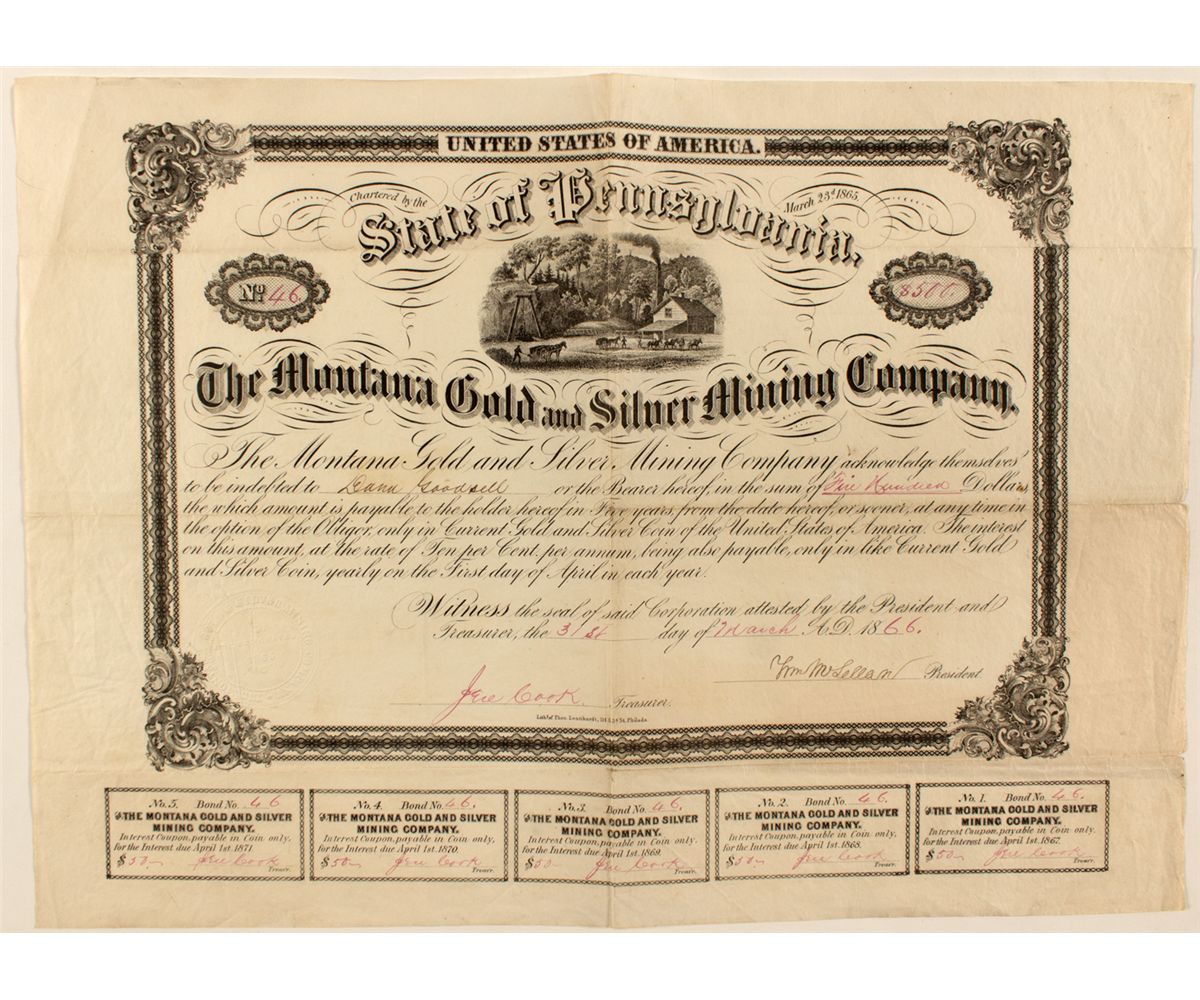 UNITED STATES OF AMERICA.
Chartered by the March 23d 1865.
State of Pennsylvania,
No. 46.
$500.
The Montana Gold and Silver Mining Company.
The Montana Gold and Silver Mining Company acknowledge themselves
to be indebted to Dana Goodsell or the Bearer hereof, in the sum of Five Hundred Dollars,
the which amount is payable to the holder hereof in Five years, from the date hereof, or sooner, at any time in
the option of the Obligor, only in Current Gold and Silver Coin of the United States of America. The interest
on this amount, at the rate of Ten per Cent. per annum, being also payable, only in like Current Gold
and Silver Coin, yearly on the First day of April in each year.
Witness the seal of said Corporation attested by the President and
Treasurer, the 31st day of March A.D. 1866.
Wm McLellan President.
Jere Cook Treasurer.
Lith. of Thos. Leonhardt, Philada.
No. 5. Bond No. 46
THE MONTANA GOLD AND SILVER
MINING COMPANY.
Interest Coupon, payable in Coin only,
for the Interest due April 1st. 1871.
$50 Jere Cook
Treasr.
No. 4. Bond No. 46.
THE MONTANA GOLD AND SILVER
MINING COMPANY.
Interest Coupon, payable in Coin only,
for the Interest due April 1st. 1870.
$50 Jere Cook
Treasr.
No. 3. Bond No. 46.
THE MONTANA GOLD AND SILVER
MINING COMPANY.
Interest Coupon, payable in Coin only,
for the Interest due April 1st. 1869.
$50 Jere Cook
Treasr.
No. 2. Bond No. 46.
THE MONTANA GOLD AND SILVER
MINING COMPANY.
Interest Coupon, payable in Coin only,
for the Interest due April 1st. 1868.
$50 Jere Cook
Treasr.
No. 1. Bond No. 46.
THE MONTANA GOLD AND SILVER
MINING COMPANY.
Interest Coupon, payable in Coin only,
for the Interest due April 1st. 1867.
$50 Jere Cook
Treasr.